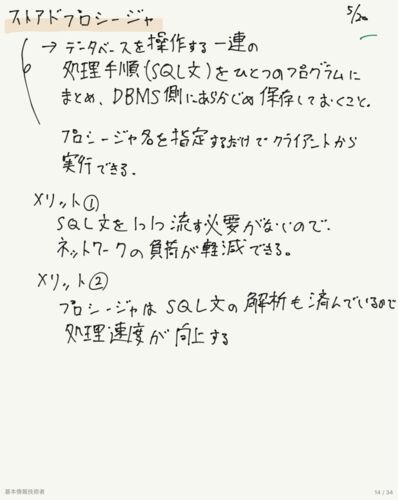 ストアドプロシージャ
5/20
→ データベースを操作する一連の
処理手順(SQL文)をひとつのプログラムに
まとめ、DBMS側にあらかじめ保存しておくこと。
プロシージャ名を指定するだけでクライアントから
実行できる。
メリット①
SQL文を1つ1つ流す必要がないので、
ネットワークの負荷が軽減できる。
メリット②
プロシージャはSQL文の解析も済んでいるので
処理速度が向上する
基本情報技術者
14 / 34